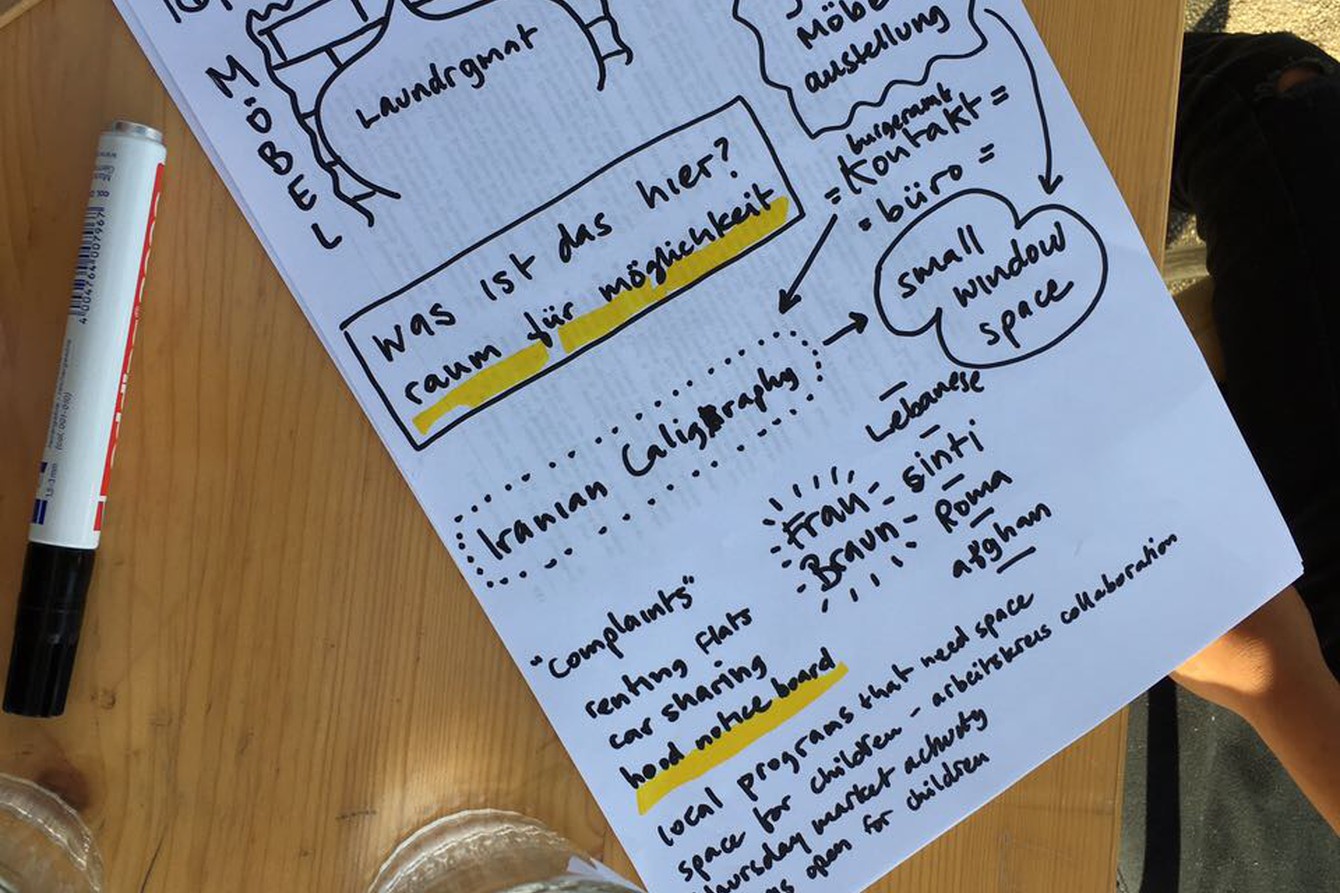 MÖBEL
Laundrgmat
Möbe
austellung
was ist das hier?
raum für möglichkeit
burgeramt
= Kontakt =
= büro =
small
window
space
Iranian Caligraphy
Lebanese
Sinti
Roma
afghan
Frau
Braun
"complaints"
renting flats
car sharing
hood notice board
local programs that need space
space for children - arbeitskreis collaboration
thursday market activity
open for children
4004764007967
1,5-3 mm